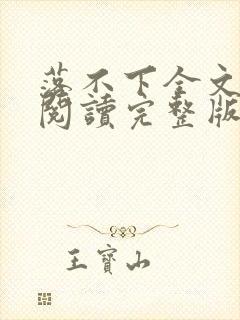 落不下全文
閱讀完整版
王寶山